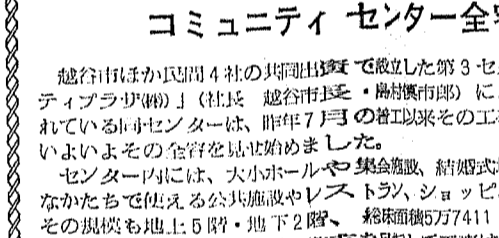 コミュニティ センター全
越谷市ほか民間4社の共同出資で設立した第3セ
ティプラザ㈱」(社長 越谷市長・島村慎市郎)に
れている同センターは、昨年7月の着工以来その工
いよいよその全容を見せ始めました。
センター内には、大小ホールや集会施設、結婚式
なかたちで使える公共施設やレストラン、ショッピ
その規模も地上5階・地下2階、 総床面積5万7411